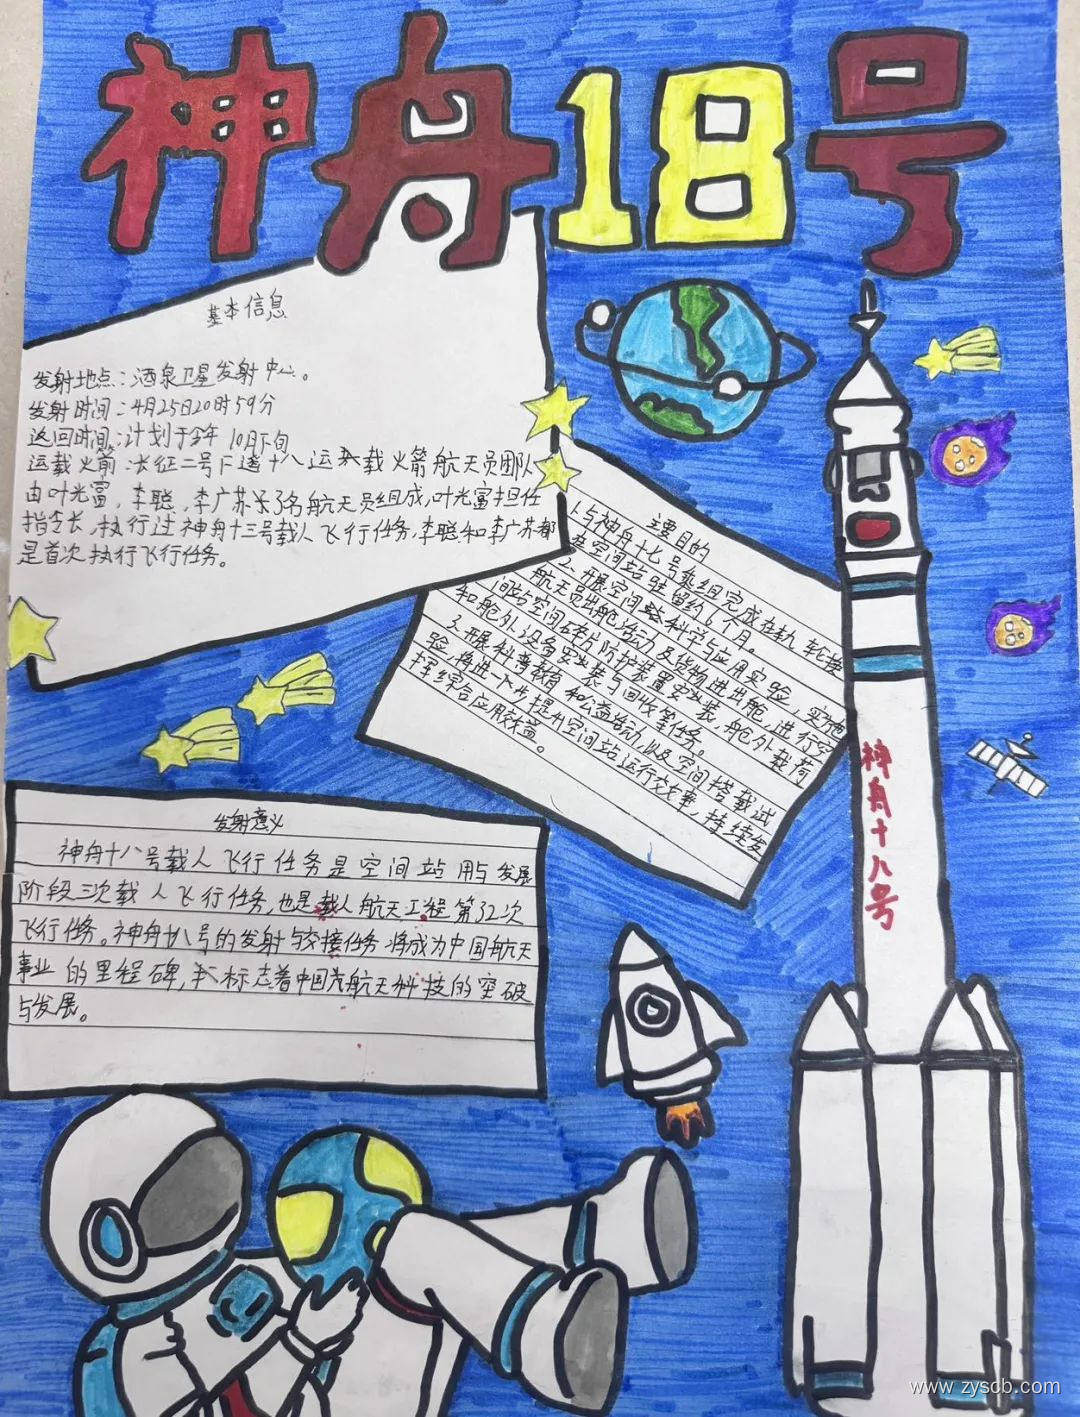 神舟18号
基本信息
发射地点：酒泉卫星发射中心。
发射时间：4月25日20时59分
返回时间：计划于今年10月下旬
运载火箭：长征二号F遥十八运载火箭航天员团队
由叶光富，李聪，李广苏3名航天员组成，叶光富担任
指令长，执行过神舟十三号载人飞行任务，李聪和李广苏都
是首次执行飞行任务。
主要目的
1.与神舟十七号乘组完成在轨轮换
在空间站驻留约6个月。
2.开展空间科学与应用实验，实施
航天员出舱活动及货物进出舱，进行空
间站空间碎片防护装置安装，舱外载荷
和舱外设备安装与回收等任务。
3.开展科普教育和公益活动，以及空间搭载试
验，将进一步提升空间站运行效率，持续发
挥综合应用效益。
神舟十八号
发射意义
神舟十八号载人飞行任务是空间站用与发展
阶段三次载人飞行任务，也是载人航天工程第32次
飞行任务。神舟十八号的发射与交接任务将成为中国航天
事业的里程碑，标志着中国航天科技的突破
与发展。
www.zyscb.com